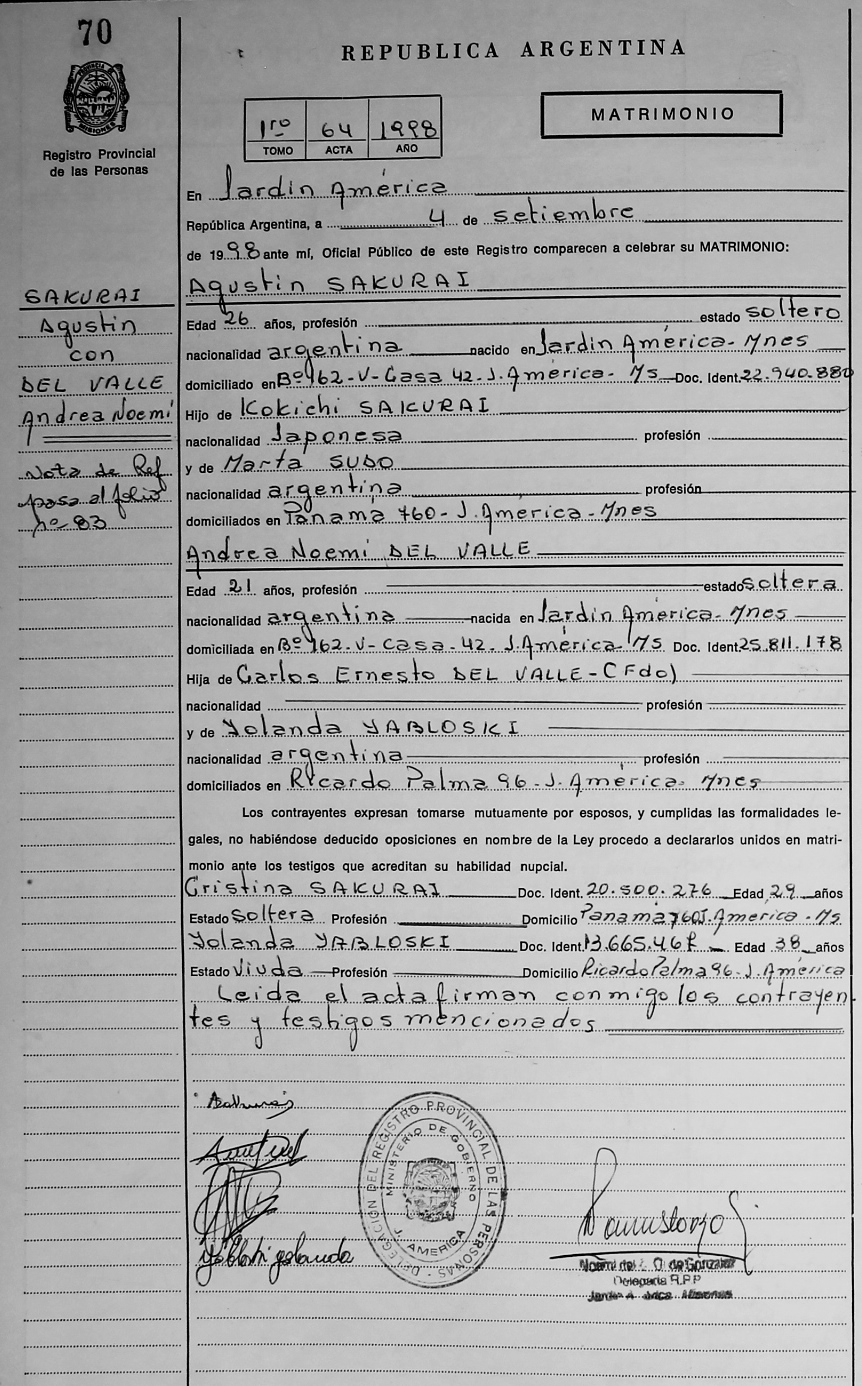 70
REPUBLICA ARGENTINA
PROVINCIA DE MISIONES
Registro Provincial
de las Personas
1ro 64 1998
TOMO ACTA AÑO
MATRIMONIO
En Jardín América
República Argentina, a 4 de setiembre
de 1998 ante mí, Oficial Público de este Registro comparecen a celebrar su MATRIMONIO:
Agustin SAKURAI
SAKURAI
Agustin
con
DEL VALLE
Andrea Noemí
Nota de Ref
pasa al folio
nº 83
Edad 26 años, profesión estado soltero
nacionalidad argentina nacido en Jardín América- Mnes
domiciliado en Bº 162-V-Casa 42-J.América- Ms Doc. Ident. 22.940.880
Hijo de Kokichi SAKURAI
nacionalidad Japonesa profesión
y de Marta SUDO
nacionalidad argentina profesión
domiciliados en Panamá 760- J.América- Mnes
Andrea Noemí DEL VALLE
Edad 21 años, profesión estado soltera
nacionalidad argentina nacida en Jardín América- Mnes
domiciliada en Bº 162-V-Casa-42-J.América Ms Doc. Ident. 25.811.178
Hija de Carlos Ernesto DEL VALLE-(Fdo)
nacionalidad profesión
y de Yolanda YABLOSKI
nacionalidad argentina profesión
domiciliados en Ricardo Palma 96-J.América- Mnes
Los contrayentes expresan tomarse mutuamente por esposos, y cumplidas las formalidades le-
gales, no habiéndose deducido oposiciones en nombre de la Ley procedo a declararlos unidos en matri-
monio ante los testigos que acreditan su habilidad nupcial.
Cristina SAKURAI Doc. Ident. 20.500.276 Edad 29 años
Estado Soltera Profesión Domicilio Panamá 760J.America-Ms
Yolanda YABLOSKI Doc. Ident. Edad 38 años
Estado Viuda Profesión Domicilio Ricardo Palma 96-J.América
Leída el acta firman conmigo los contrayen
tes y testigos mencionados
DELEGACION DEL REGISTRO PROVINCIAL DE LAS PERSONAS
MINISTERIO DE GOBIERNO
J. AMERICA
Yabloski Yolanda
Noemí de Gonzalez
Delegada R.P.P